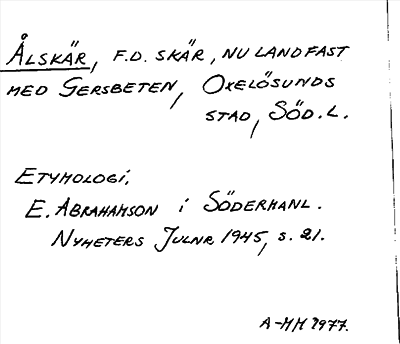 ÅLSKÄR, F.D. SKÄR, NU LANDFAST
MED GERSBETEN, OXELÖSUNDS
STAD, SÖD. L.
ETYMOLOGI.
E. ABRAHAMSON i SÖDERMANL.
NYHETERS JULNR 1945, s. 21.
A-MM 1977.